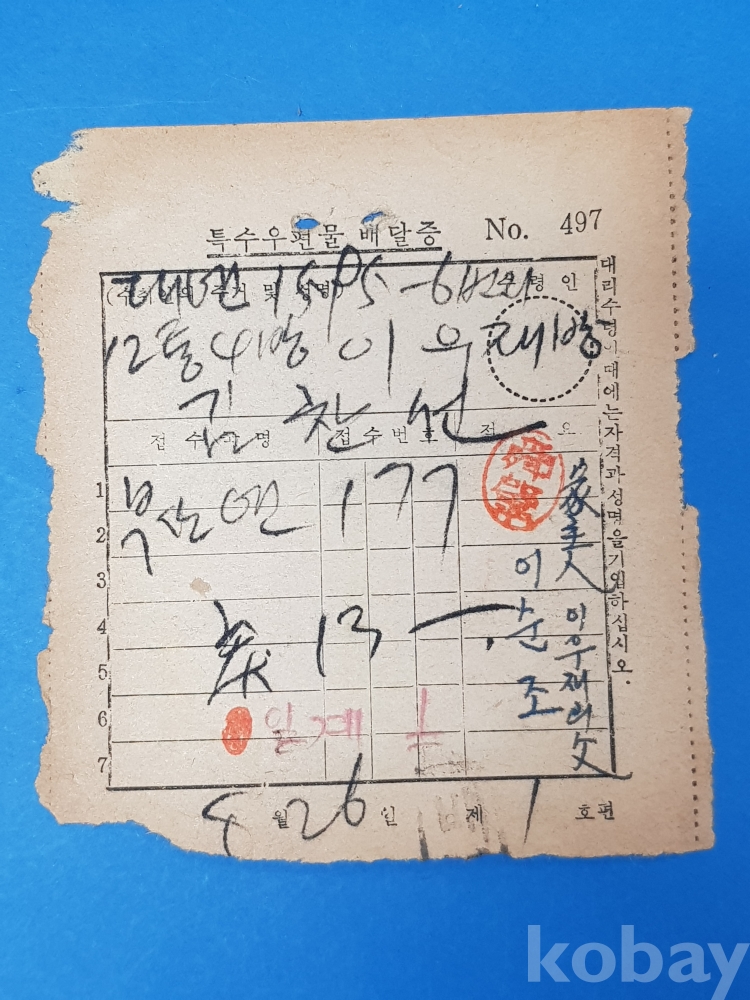 특수우편물 배달증 No. 497
(수취인의 주거 및 성명) 수령인
대연 1595-6번지
12통 4반 이우재방
김찬선
접수국명 접수번호 적요
1
부산연 177
2
3
4
13
5
6
일계
7
이순조
이우재
4월 26일 제 1 호편
대리수령이때에는자격과성명을기입하십시오.
kobay